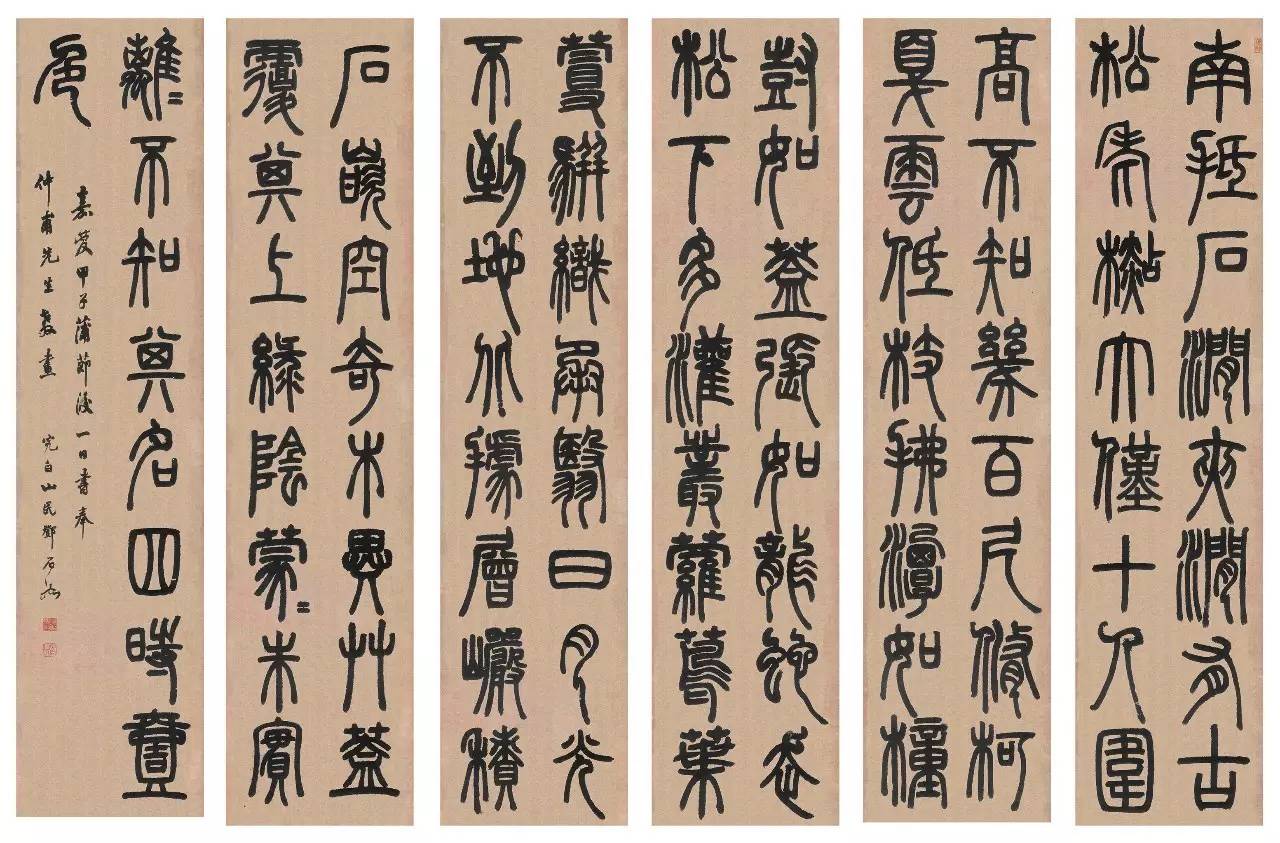 南抵石澗夾澗有古
松老杉大僅十人圍
高不知幾百尺修柯
戛雲低枝拂潭如幢
尌如蓋張如龍蛇走
松下多灌叢蘿蔦葉
蔓駢織承翳日月光
不到地北據層巖積
石嵌空奇木異艸蓋
覆其上綠陰蒙〻朱實
離〻不知其名四時壹
色
嘉慶甲子蒲節後一日書奉
仲甫先生教 完白山民鄧石如